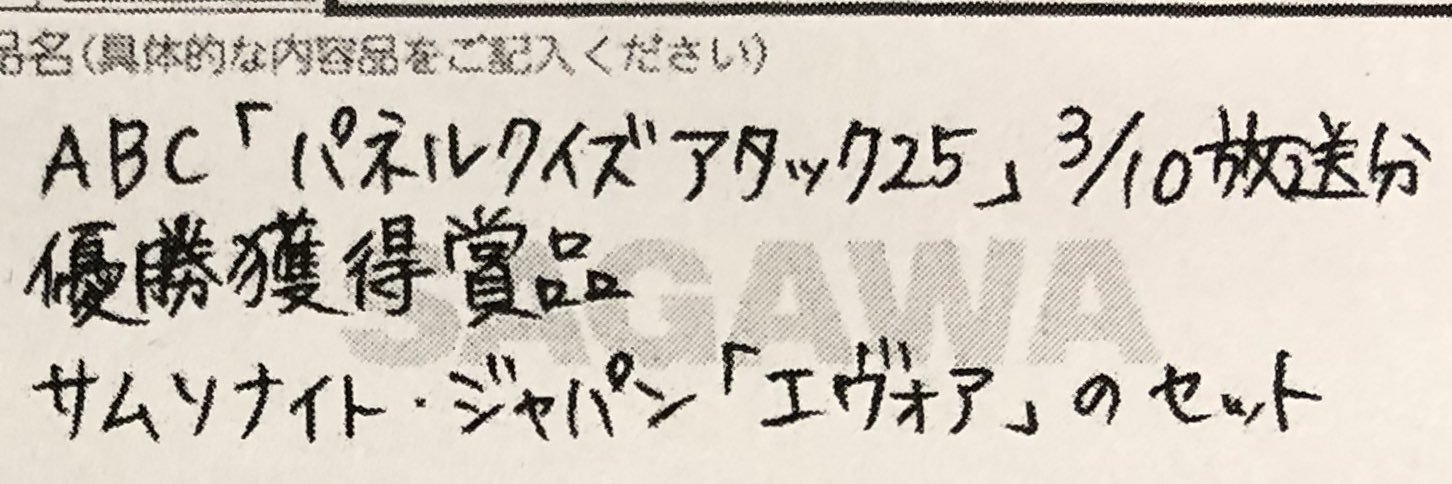 品名(具体的な内容品をご記入ください)
ABC「パネルクイズアタック25」3/10放送分
優勝獲得賞品
SAGAWA
サムソナイト・ジャパン「エヴォア」のセット